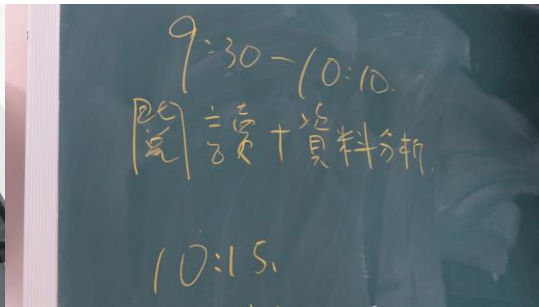 9:30-10:10.
閱讀+資料分析.
10:15.